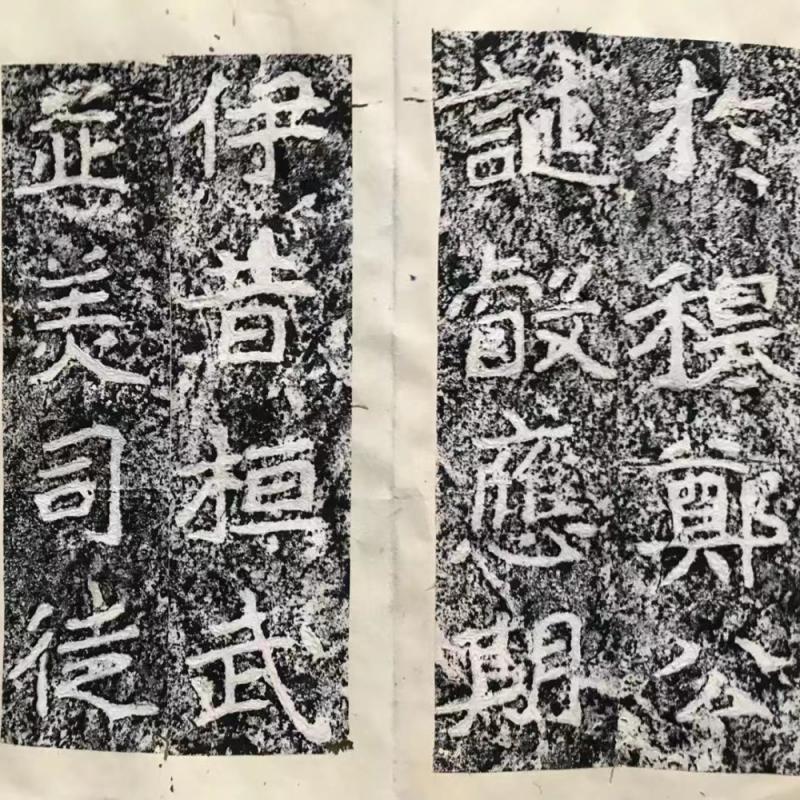 於穆鄭公
誕叡應期
伊昔桓武
並美司徒